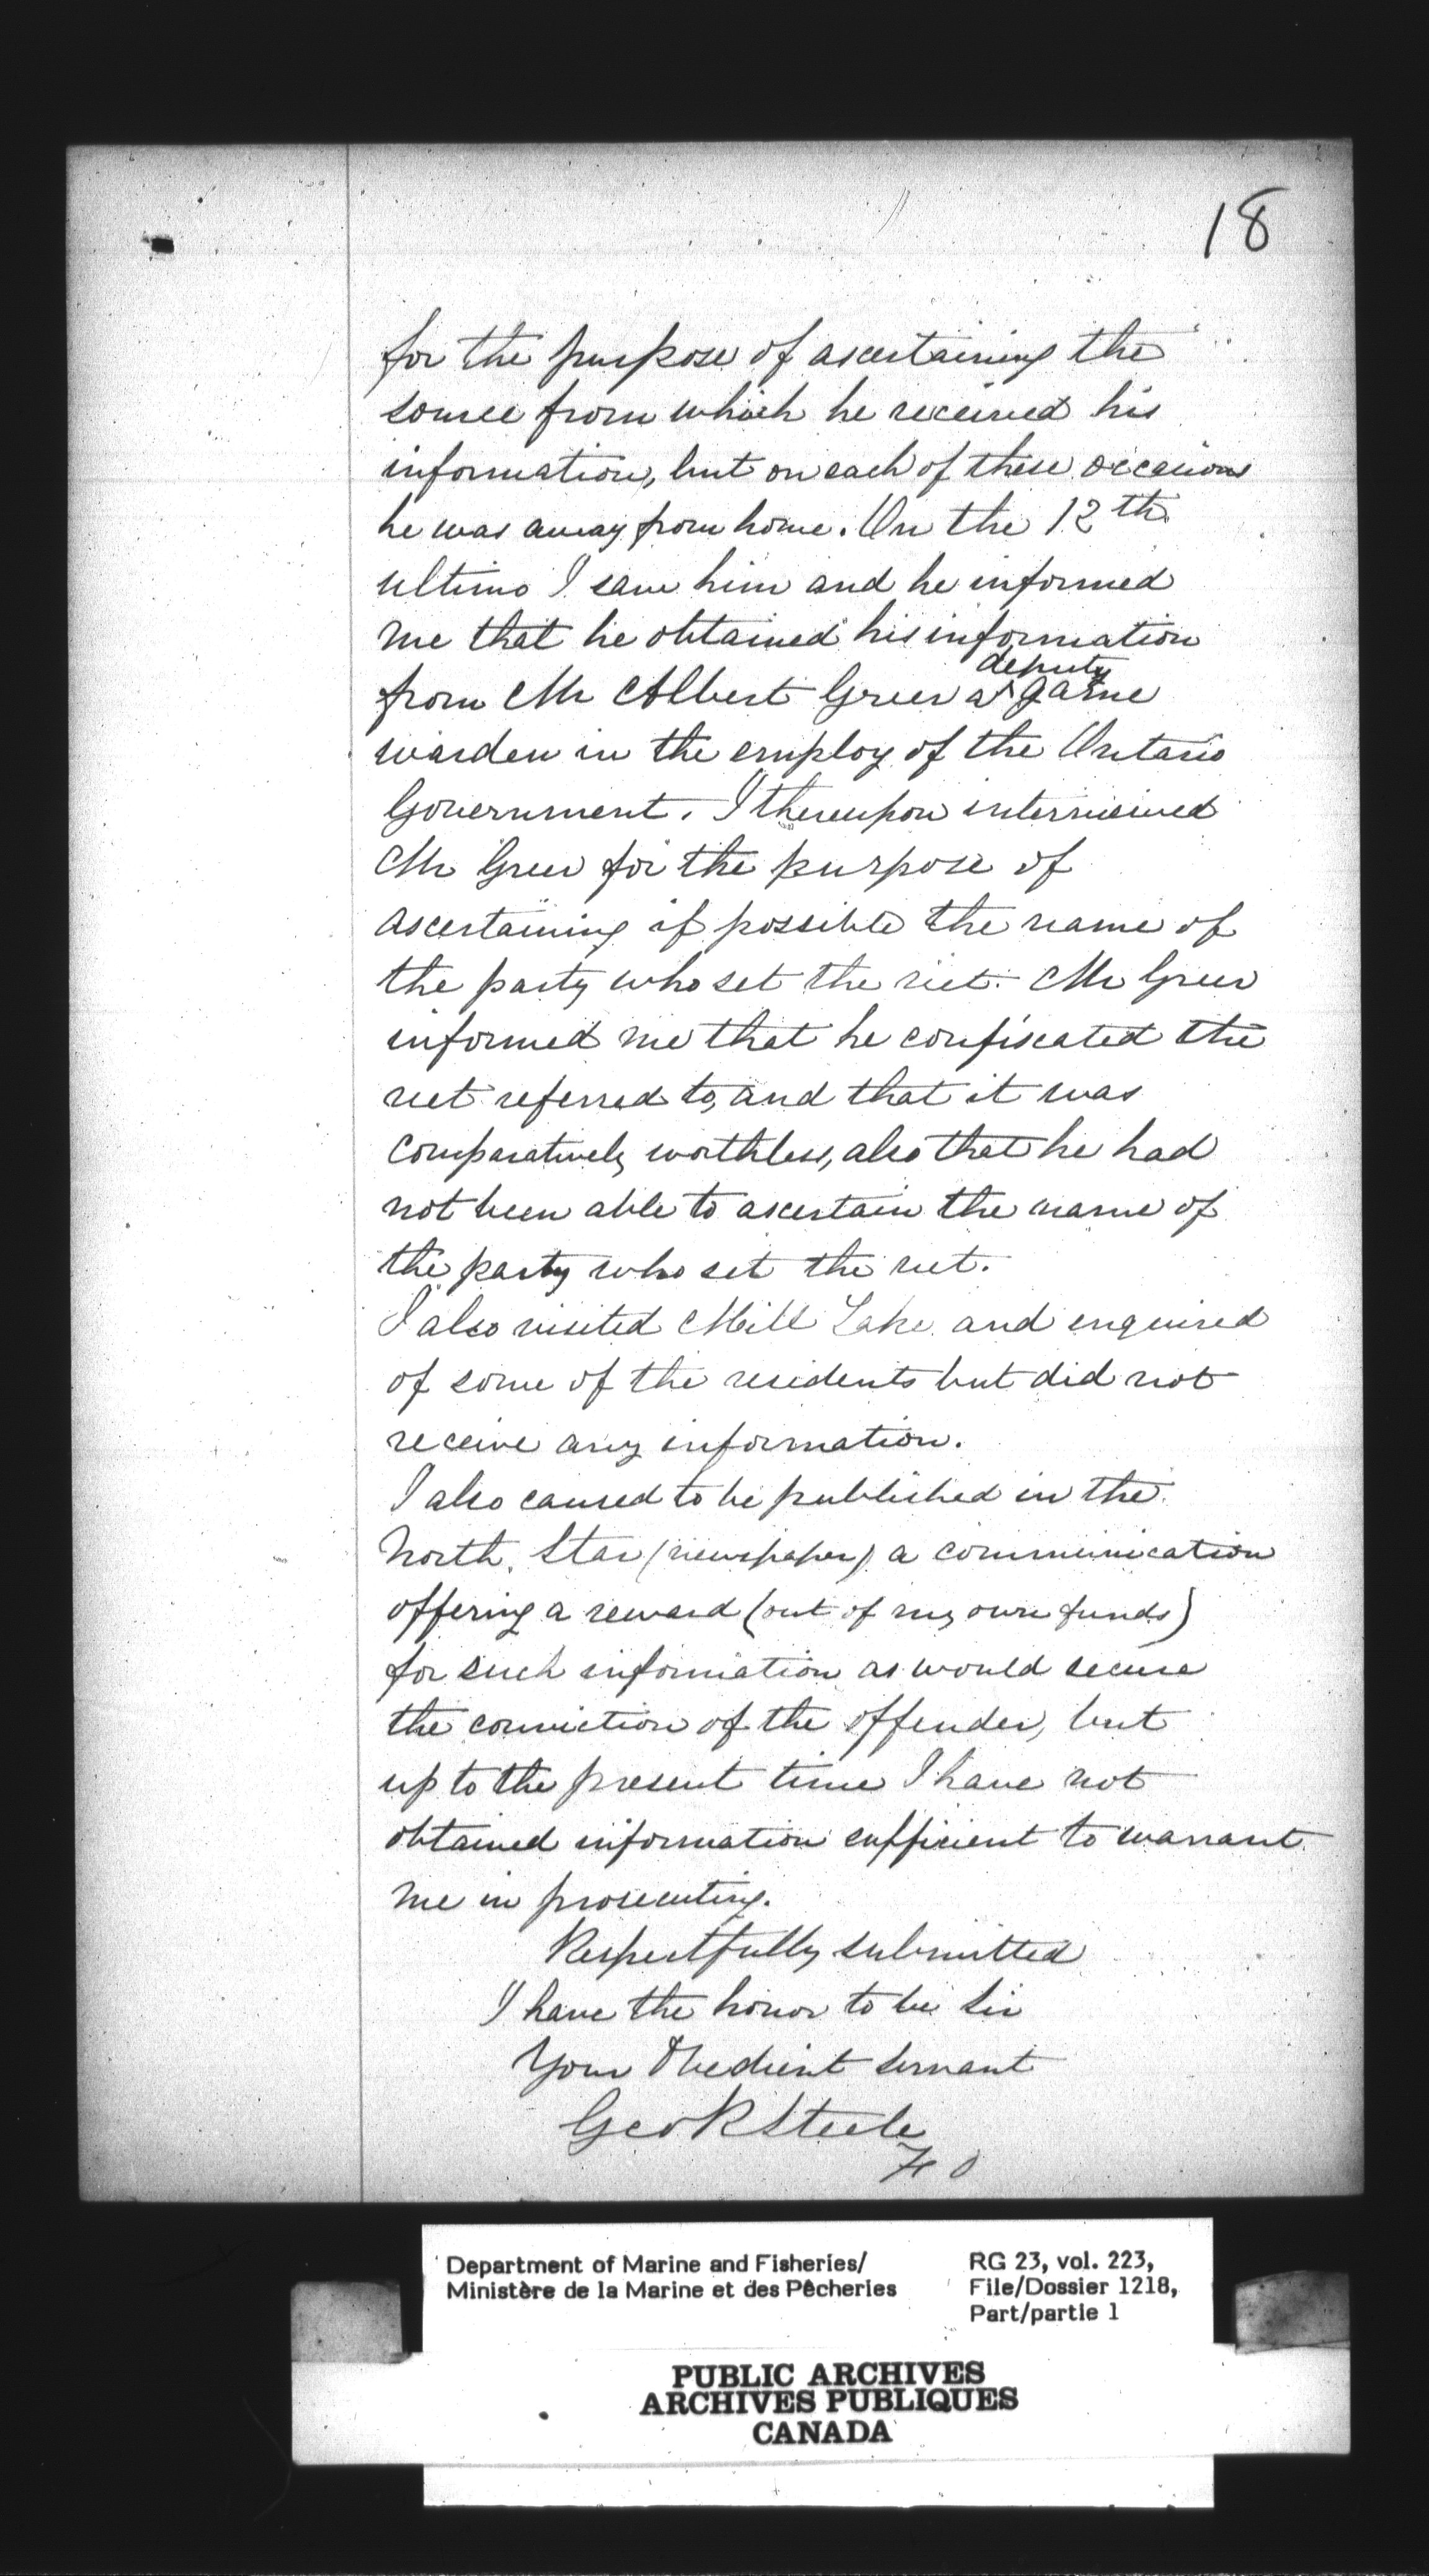 18
for the purpose of ascertaining the
source from which he received his
information, but on each of these occasions
he was away from home. On the 12th
ultimo I saw him and he informed
me that he obtained his information
deputy
from Mr Albert Greer a game
warden in the employ of the Ontario
Government. I thereupon interviewed
Mr Greer for the purpose of
ascertaining if possible the name of
the party who set the net. Mr Greer
informed me that he confiscated the
net referred to, and that it was
comparatively worthless, also that he had
not been able to ascertain the name of
the party who set the net.
I also visited Mill Lake and enquired
of some of the residents but did not
receive any information.
I also caused to be published in the
North Star (newspaper) a communication
offering a reward (out of my own funds)
for such information as would secure
the conviction of the offender, but
up to the present time I have not
obtained information sufficient to warrant
me in prosecuting.
Respectfully submitted
I have the honor to be Sir
Your Obedient servant
Geo R Steele
F O
Department of Marine and Fisheries/
Ministère de la Marine et des Pêcheries
RG 23, vol. 223,
File/Dossier 1218,
Part/partie 1
PUBLIC ARCHIVES
ARCHIVES PUBLIQUES
CANADA